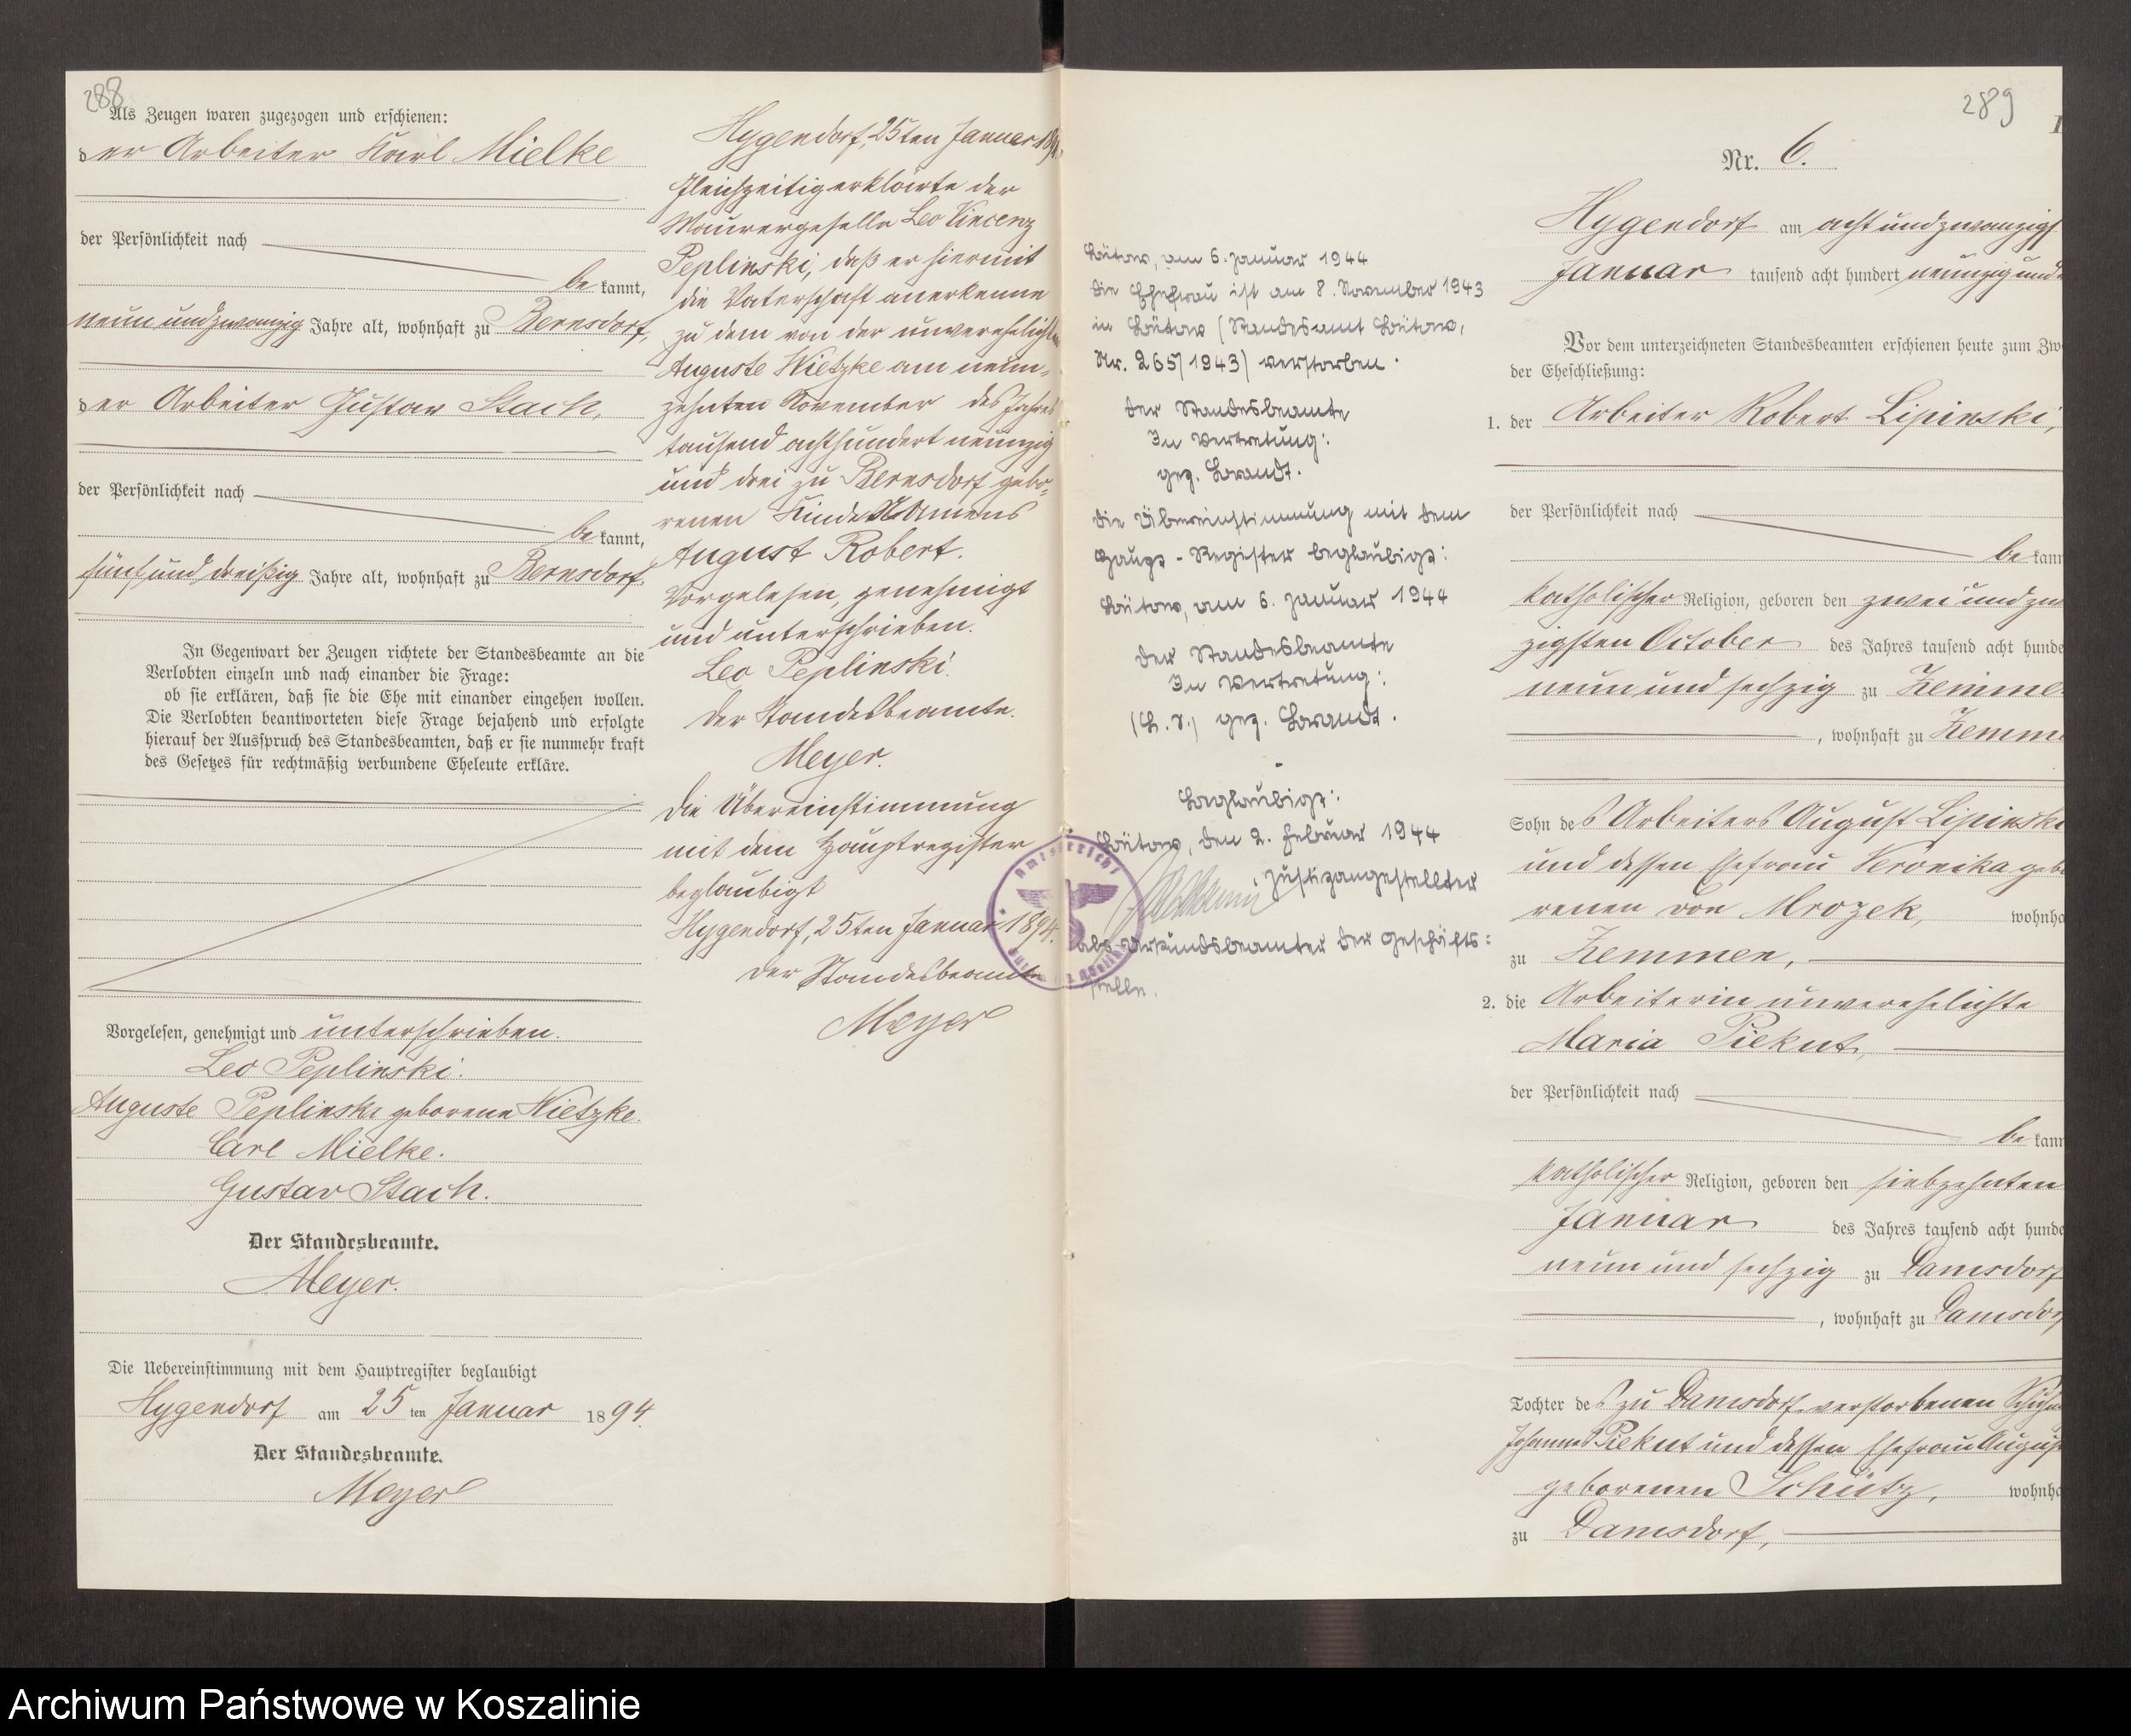 288
Als Zeugen waren zugezogen und erschienen:
der Arbeiter Karl Mielke
der Persönlichkeit nach
be kannt,
neun und zwanzig Jahre alt, wohnhaft zu Bernsdorf,
der Arbeiter Gustav Stach,
der Persönlichkeit nach
be kannt,
fünf und dreißig Jahre alt, wohnhaft zu Bernsdorf,
In Gegenwart der Zeugen richtete der Standesbeamte an die
Verlobten einzeln und nach einander die Frage:
ob sie erklären, daß sie die Ehe mit einander eingehen wollen.
Die Verlobten beantworteten diese Frage bejahend und erfolgte
hierauf der Ausspruch des Standesbeamten, daß er sie nunmehr kraft
des Gesetzes für rechtmäßig verbundene Eheleute erkläre.
Vorgelesen, genehmigt und unterschrieben.
Leo Peplinski.
Auguste Peplinski geborene Wietzke.
Carl Mielke.
Gustav Stach.
Der Standesbeamte.
Meyer.
Die Uebereinstimmung mit dem Hauptregister beglaubigt
Hygendorf am 25 ten Januar 1894.
Der Standesbeamte.
Meyer
Hygendorf, 25ten Januar 1894.
Gleichzeitig erklärte der
Maurergeselle Leo Vincenz
Peplinski, daß er hiermit
die Vaterschaft anerkenne
zu dem von der unverehelichten
Auguste Wietzke am neun-
zehnten November des Jahres
tausend achthundert neunzig
und drei zu Bernsdorf gebo-
renen Kinde Namens
August Robert.
Vorgelesen, genehmigt
und unterschrieben.
Leo Peplinski.
Der Standesbeamte.
Meyer.
Die Übereinstimmung
mit dem Hauptregister
beglaubigt
Hygendorf, 25ten Januar 1894.
Der Standesbeamte
Meyer
Bütow, am 6. Januar 1944
Die Ehefrau ist am 8. November 1943
in Bütow (Standesamt Bütow,
Nr. 265/1943) verstorben.
Der Standesbeamte
In Vertretung:
gez. Brandt.
Die Übereinstimmung mit dem
Haupt-Register beglaubigt:
Bütow, am 6. Januar 1944
Der Standesbeamte
In Vertretung:
(L. S.) gez. Brandt.
Beglaubigt:
Bütow, den 2. Februar 1944
, Justizangestellter
als Urkundsbeamter der Geschäfts:
stelle.
Amtsgericht
289
Nr. 6.
Hygendorf am acht und zwanzigst
Januar tausend acht hundert neunzig und
Vor dem unterzeichneten Standesbeamten erschienen heute zum Zw
der Eheschließung:
1. der Arbeiter Robert Lipinski,
der Persönlichkeit nach
be kann
katholischer Religion, geboren den zwei und zw
zigsten October des Jahres tausend acht hunde
neun und sechzig zu Zemme
, wohnhaft zu Zemm
Sohn des Arbeiters August Lipinski
und dessen Ehefrau Veronika gebo
renen von Mrozek, wohnha
zu Zemmen,
2. die Arbeiterin unverehelichte
Maria Piekut,
der Persönlichkeit nach
be kann
katholischer Religion, geboren den siebzehnten
Januar des Jahres tausend acht hunde
neun und sechzig zu Damsdorf
, wohnhaft zu Damsdor
Tochter des zu Damsdorf verstorbenen
Johannes Piekut und dessen Ehefrau August
geborenen Schütz, wohnha
zu Damsdorf,
Archiwum Państwowe w Koszalinie